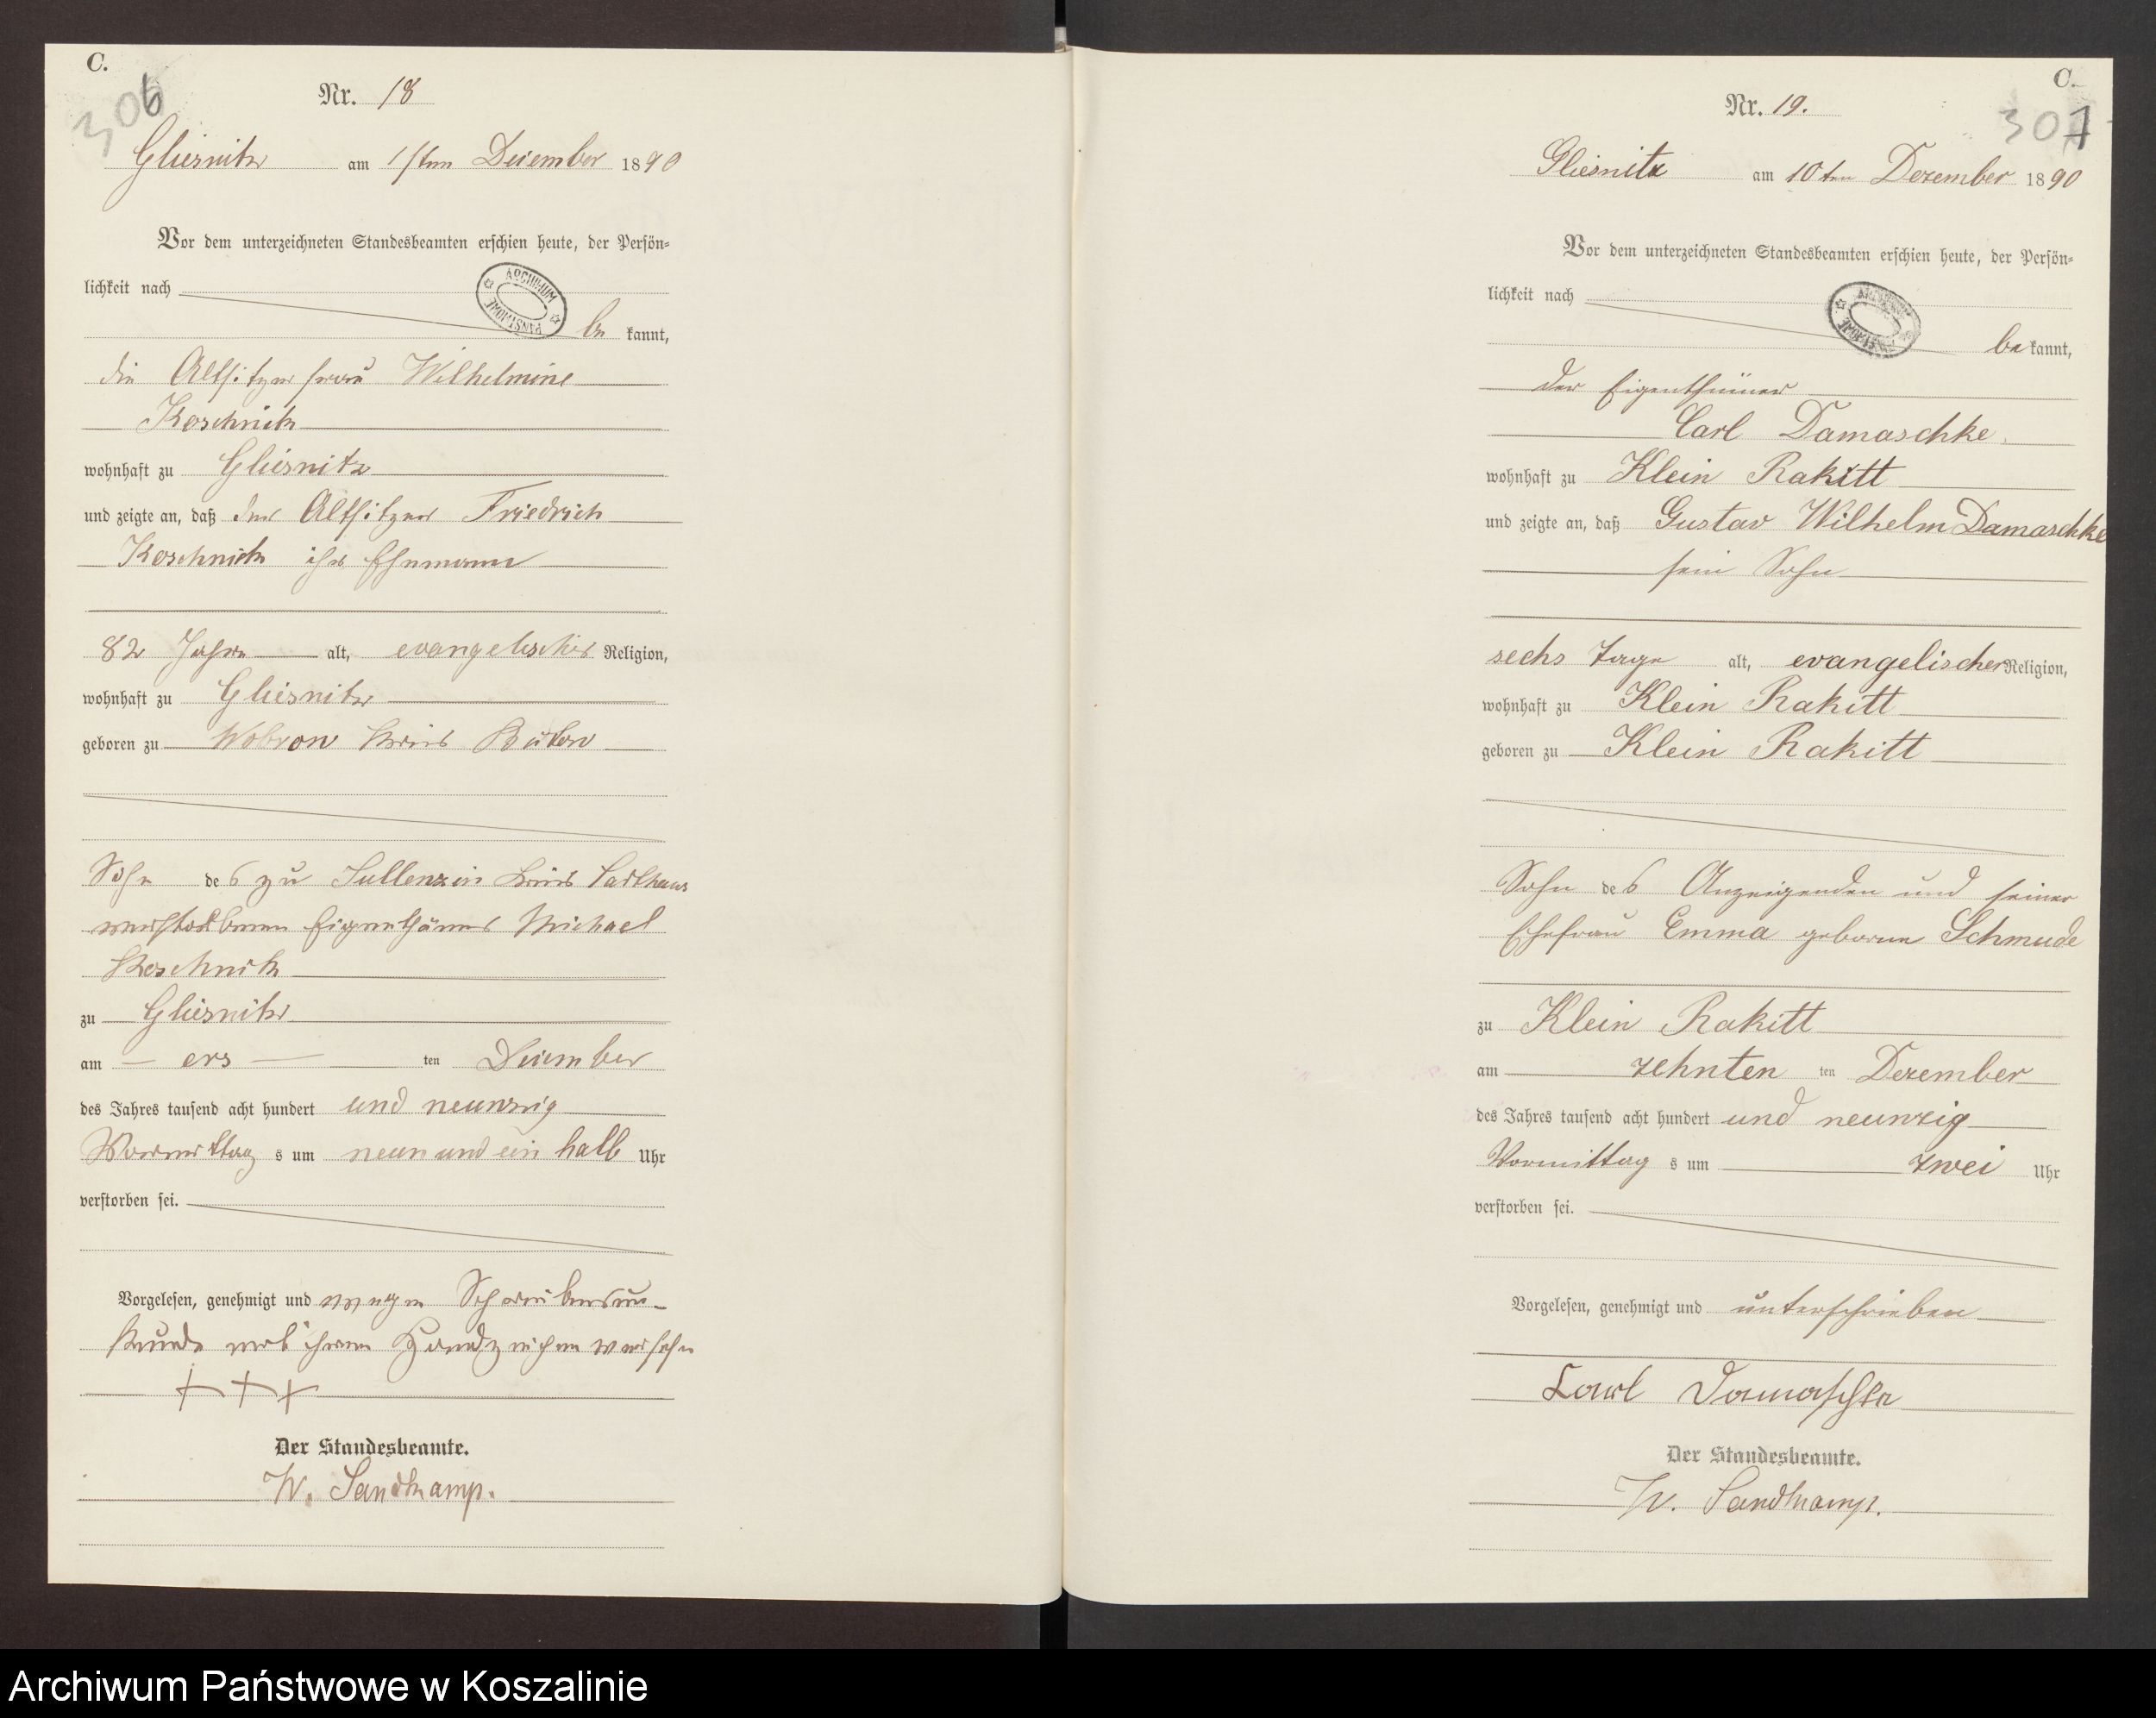 C.
306
Nr. 18
Gliesnitz am 1sten Dezember 1890
Vor dem unterzeichneten Standesbeamten erschien heute, der Persön-
lichkeit nach
ARCHIWUM PAŃSTWOWE
be kannt,
die Altsitzerfrau Wilhelmine
Koschnick
wohnhaft zu Gliesnitz
und zeigte an, daß der Altsitzer Friedrich
Koschnick ihr Ehemann
82 Jahre alt, evangelischer Religion,
wohnhaft zu Gliesnitz
geboren zu Kreis Bütow
Sohn des zu Sullenzin Kreis Carthaus
verstorbenen Eigenthümers Michael
Koschnick
zu Gliesnitz
am ers ten Dezember
des Jahres tausend acht hundert und neunzig
Vormittag s um neun und ein halb Uhr
verstorben sei.
Vorgelesen, genehmigt und wegen Schreibensun-
kunde mit ihrem Handzeichen versehn
+++
Der Standesbeamte.
W. Sandkamp.
C.
307
Nr. 19.
Gliesnitz am 10ten Dezember 1890
Vor dem unterzeichneten Standesbeamten erschien heute, der Persön-
lichkeit nach
ARCHIWUM PAŃSTWOWE
be kannt,
der Eigenthümer
Carl Damaschke
wohnhaft zu Klein Rakitt
und zeigte an, daß Gustav Wilhelm Damaschke
sein Sohn
sechs Tage alt, evangelischer Religion,
wohnhaft zu Klein Rakitt
geboren zu Klein Rakitt
Sohn des Anzeigenden und seiner
Ehefrau Emma geborene Schmude
zu Klein Rakitt
am zehnten ten Dezember
des Jahres tausend acht hundert und neunzig
Vormittag s um zwei Uhr
verstorben sei.
Vorgelesen, genehmigt und unterschrieben
Carl Damaschke
Der Standesbeamte.
W. Sandkamp.
Archiwum Państwowe w Koszalinie